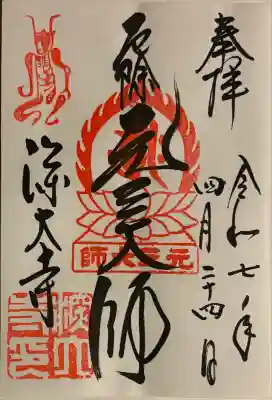 奉拝
令和七年
四月二十四日
厄除元三大師
元三大師
深大寺